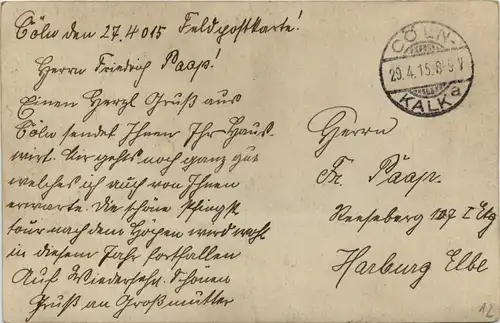 Cöln den 27.4 015 Feldpostkarte!
Herrn Friedrich Paap!
Einen Herzl Gruß aus
Cöln sendet Ihnen Ihr Haus-
wirt. Mir gehts noch ganz gut
welches ich auch von Ihnen
erwarte. Die schöne Pfingst
tour nach dem Höpen wird wohl
in diesem Jahr fortfallen
Auf Wiedersehn. Schönen
Gruß an Großmutter
CÖLN-
29.4.15.8-9V
KALK a
Herrn
Fr. Paap.
Reeseberg 107 I Etg
Harburg Elbe
12